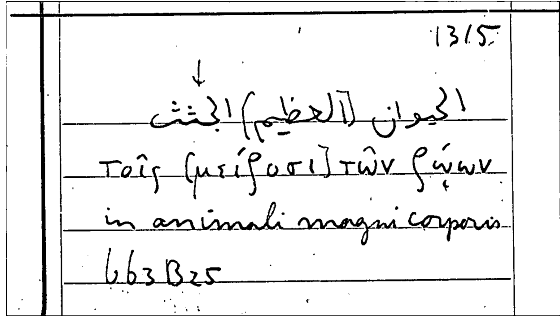 1315.
↓
الحيوان [العظيم] الجثث
τοῖς [μείζοσι] τῶν ζῴων
in animali magni corporis
663 B25